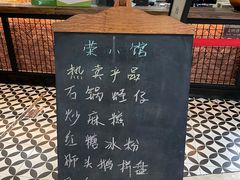 棠小馆
热卖产品
石锅蚝仔
炒麻糍
红糖冰粉
狮头鹅拼盘